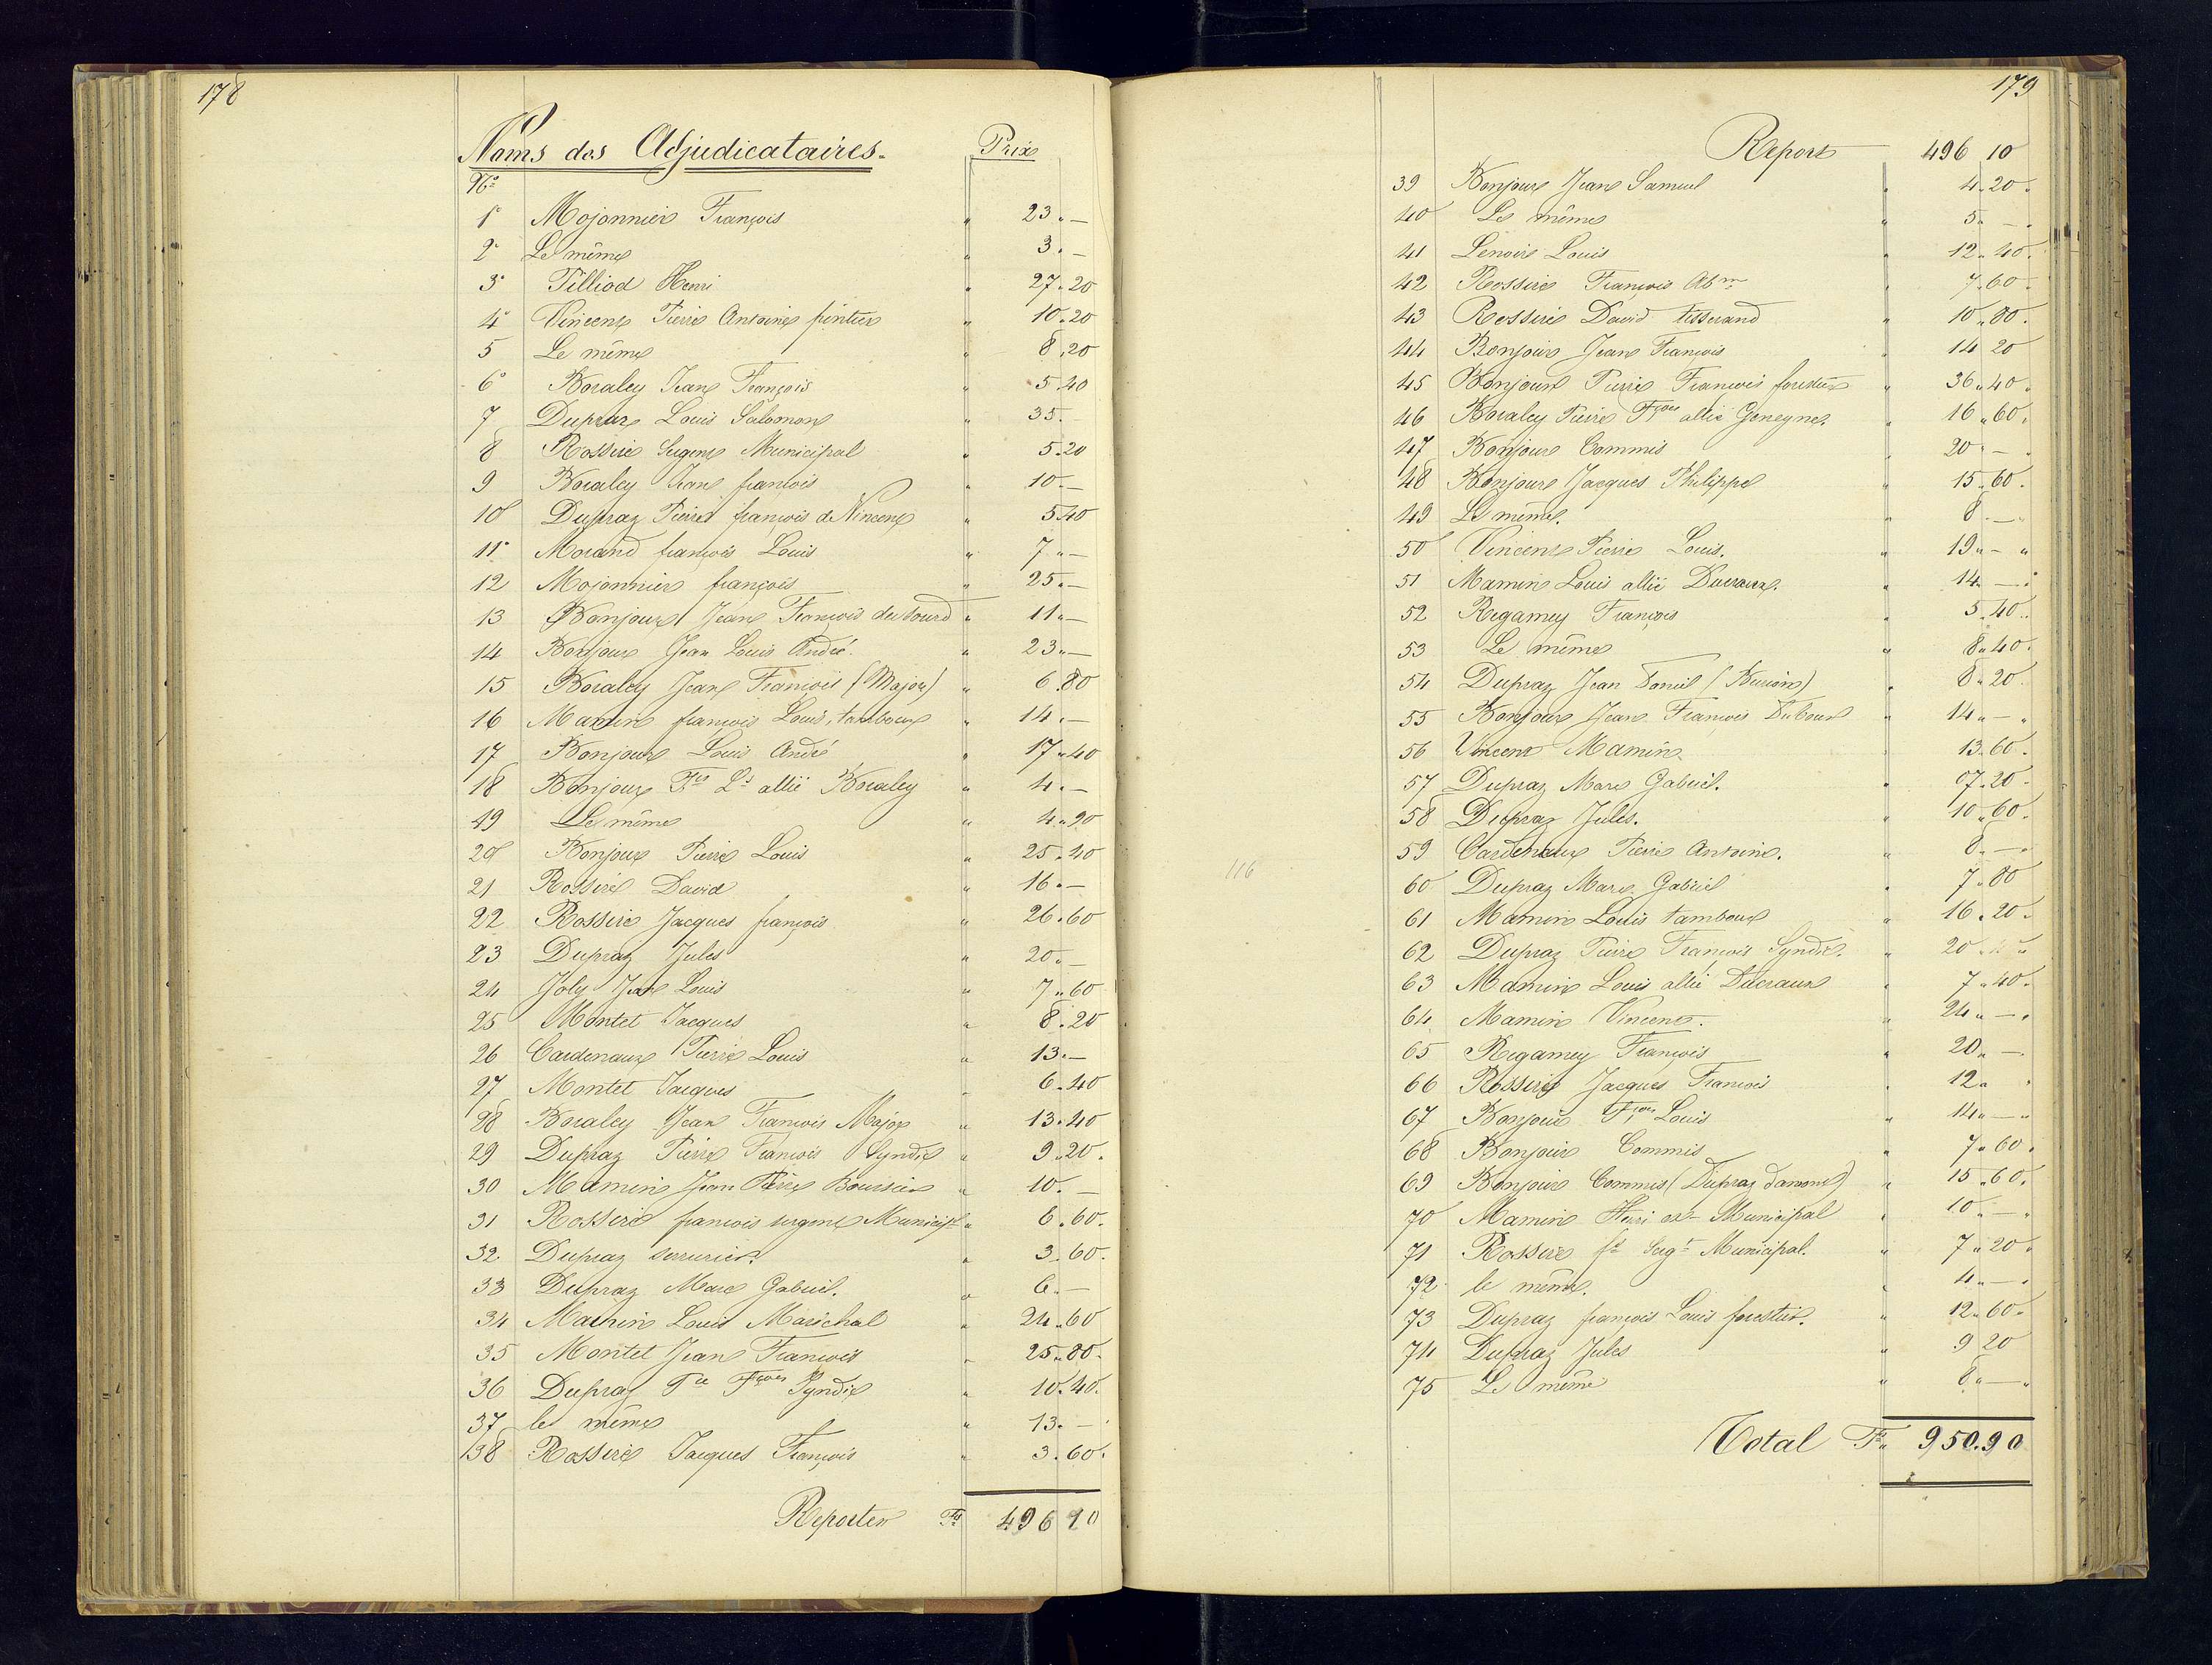 178
Noms des Adjudicataires. Prix
No
1° Mojonnier François " 23 " —
2° Le même " 3 " —
3° Pilliod Henri " 27 " 20
4° Vincent Pierre Antoine pintier " 10 " 20
5 Le même " 8 " 20
6° Bovaley Jean François " 5 40
7 Dupraz Louis Salomon " 35 —
8 Rossire Sergent Municipal " 5 " 20
9 Bovaley Jean françois " 10 " —
10 Dupraz Pierre françois de Vincent " 5 40
11° Morand françois Louis " 7 " —
12 Mojonnier françois " 25 " —
13 Bonjour Jean François du sourd " 11 " —
14 Bonjour Jean Louis André. " 23 " —
15 Bovaley Jean François (Major) " 6 80
16 Mamin françois Louis, tambour " 14 " —
17 Bonjour Louis André " 17 " 40
18 Bonjour Fçs Ls allié Bovaley " 4 " —
19 Le même " 4 " 20
20 Bonjour Pierre Louis " 25 " 40
21 Rossire David " 16 " —
22 Rossire Jacques françois " 26 " 60
23 Dupraz Jules " 20 " —
24 Joly Jean Louis " 7 " 60
25 Montet Jacques " 8 " 20
26 Cardenaux Pierre Louis " 13 " —
27 Montet Jacques " 6 " 40
28 Bovaley Jean François Major " 13 " 40
29 Dupraz Pierre François Syndic " 9 " 20 "
30 Mamin Jean Pierre Boursier " 10 " —
31 Rossire françois sergent Municipl " 6 " 60 "
32 Dupraz serrurier. " 3 " 60 "
33 Dupraz Marc Gabriel. " 6 " —
34 Mamin Louis Maréchal " 24 " 60
35 Montet Jean François " 25 " 80 "
36 Dupraz Pre Fçois Syndic " 10 " 40 "
37 le même " 13 " —
38 Rossire Jacques François " 3 " 60 "
Reporter Fs 496 10
179
Report 496 10
39 Bonjour Jean Samuel " 4 " 20 "
40 Le même " 5 " — "
41 Lenoir Louis " 12 " 40 "
42 Rossire François Abm " 7 " 60 "
43 Rossire David tisserand " 10 " 80 "
44 Bonjour Jean François " 14 20
45 Bonjour Pierre François forestier " 36 " 40 "
46 Bovaley Pierre Fçois allié Geneyne. " 16 " 60 "
47 Bonjour Commis " 20 " — "
48 Bonjour Jacques Philippe " 15 " 60 "
49 Le même. " 8 " — "
50 Vincent Pierre Louis. " 19 " — "
51 Mamin Louis allié Ducraux. " 14 " — "
52 Regamey François " 5 " 40 "
53 Le même " 8 " 40 "
54 Dupraz Jean Daniel " 8 " 20 "
55 Bonjour Jean François " 14 " — "
56 Vincent Mamin " 13 " 60 "
57 Dupraz Marc Gabriel. " 07 " 20 "
58 Dupraz Jules. " 10 " 60 "
59 Cardenaux Pierre Antoine. " 8 " — "
60 Dupraz Marc Gabriel " 7 " 80
61 Mamin Louis tambour " 16 " 20 "
62 Dupraz Pierre François Syndic. " 20 "
63 Mamin Louis allié Ducraux " 7 " 40 "
64 Mamin Vincent. " 24 " — "
65 Regamey François " 20 " —
66 Rossire Jacques François " 12 " "
67 Bonjour Fçois Louis " 14 " — "
68 Bonjour Commis " 7 " 60 "
69 Bonjour Commis (Dupraz damont) " 15 " 60 "
70 Mamin Henri ex- Municipal " 10 " — "
71 Rossire fs Sergt Municipal. " 7 " 20 "
72 le même. " 4 " — "
73 Dupraz françois Louis forestier. " 12 " 60 "
74 Dupraz Jules " 9 20
75 Le même " 8 " — "
Total Fs " 950.90
116